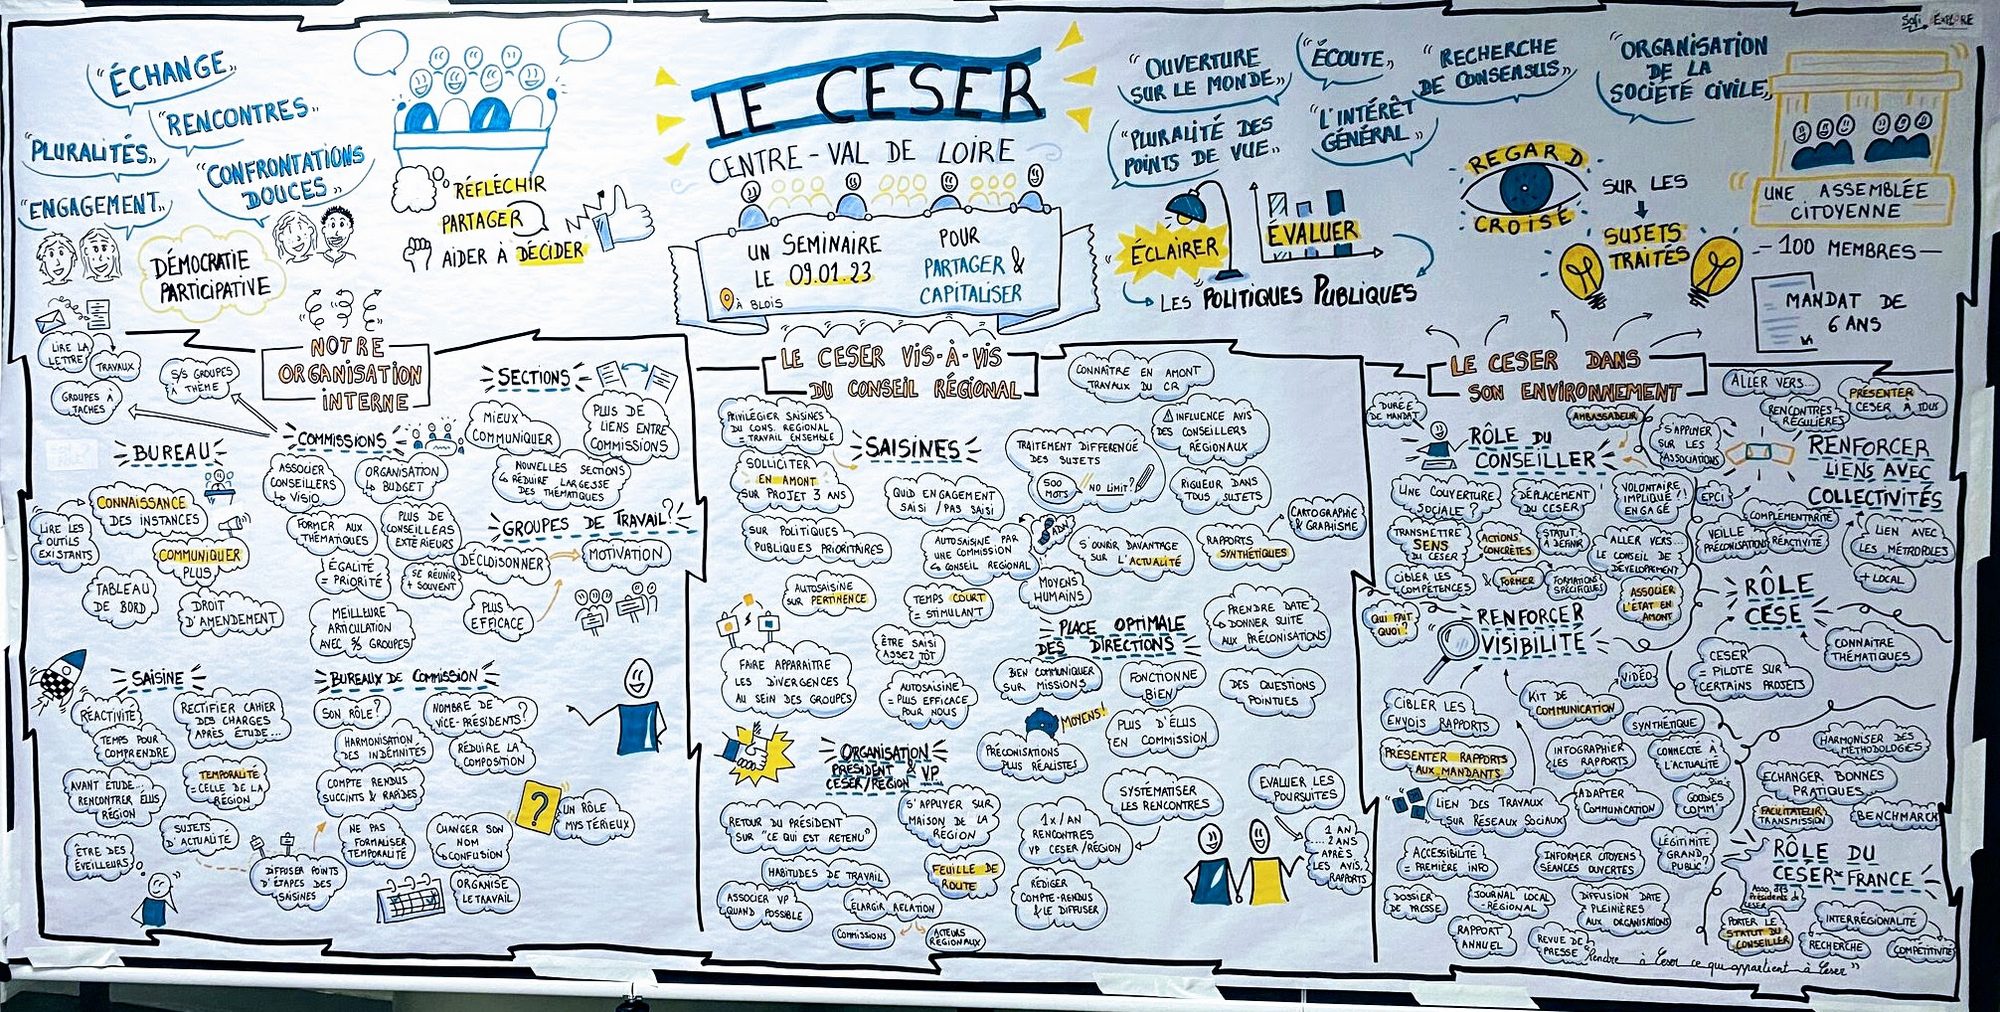 Safi EXPLORE
"ÉCHANGE"
"RENCONTRES"
"PLURALITÉS"
"CONFRONTATIONS
DOUCES"
"ENGAGEMENT"
DÉMOCRATIE
PARTICIPATIVE
RÉFLÉCHIR
PARTAGER
AIDER À DÉCIDER
LE CESER
CENTRE-VAL DE LOIRE
UN SÉMINAIRE
LE 09.01.23
À BLOIS
POUR
PARTAGER &
CAPITALISER
"OUVERTURE
SUR LE MONDE"
"ÉCOUTE"
"RECHERCHE
DE CONSENSUS"
"ORGANISATION
DE LA
SOCIÉTÉ CIVILE"
"PLURALITÉ DES
POINTS DE VUE"
"L'INTÉRÊT
GÉNÉRAL"
ÉCLAIRER
ÉVALUER
LES POLITIQUES PUBLIQUES
REGARD
CROISÉ
SUR LES
SUJETS
TRAITÉS
UNE ASSEMBLÉE
CITOYENNE
- 100 MEMBRES -
MANDAT DE
6 ANS
NOTRE
ORGANISATION
INTERNE
LIRE LA
LETTRE
TRAVAUX
GROUPES À
TACHES
S/S GROUPES
À THÈME
BUREAU
CONNAISSANCE
DES INSTANCES
LIRE LES
OUTILS
EXISTANTS
COMMUNIQUER
PLUS
TABLEAU
DE BORD
DROIT
D'AMENDEMENT
COMMISSIONS
ASSOCIER
CONSEILLERS
VISIO
ORGANISATION
BUDGET
FORMER AUX
THÉMATIQUES
PLUS DE
CONSEILLERS
EXTÉRIEURS
ÉGALITÉ
= PRIORITÉ
SE RÉUNIR
+ SOUVENT
MEILLEURE
ARTICULATION
AVEC S/S GROUPES
SECTIONS
MIEUX
COMMUNIQUER
PLUS DE
LIENS ENTRE
COMMISSIONS
NOUVELLES SECTIONS
RÉDUIRE LARGESSE
DES THÉMATIQUES
GROUPES DE TRAVAIL?
DÉCLOISONNER
MOTIVATION
PLUS
EFFICACE
SAISINE
RÉACTIVITÉ
TEMPS POUR
COMPRENDRE
RECTIFIER CAHIER
DES CHARGES
APRÈS ÉTUDE...
AVANT ÉTUDE...
RENCONTRER ÉLUS
RÉGION
TEMPORALITÉ
= CELLE DE LA
RÉGION
SUJETS
D'ACTUALITÉ
ÊTRE DES
ÉVEILLEURS
DIFFUSER POINTS
D'ÉTAPES DES
SAISINES
BUREAUX DE COMMISSION
SON RÔLE?
NOMBRE DE
VICE-PRÉSIDENTS?
HARMONISATION
DES INDEMNITÉS
RÉDUIRE LA
COMPOSITION
COMPTE RENDUS
SUCCINTS & RAPIDES
NE PAS
FORMALISER
TEMPORALITÉ
CHANGER SON
NOM
CONFUSION
ORGANISE
LE TRAVAIL
?
UN RÔLE
MYSTÉRIEUX
LE CESER VIS-À-VIS
DU CONSEIL RÉGIONAL
CONNAÎTRE EN AMONT
TRAVAUX DU CR
PRIVILÉGIER SAISINES
DU CONS. RÉGIONAL
= TRAVAIL ENSEMBLE
SAISINES
SOLLICITER
EN AMONT
SUR PROJET 3 ANS
TRAITEMENT DIFFÉRENCIÉ
DES SUJETS
500
MOTS
NO LIMIT?
INFLUENCE AVIS
DES CONSEILLERS
RÉGIONAUX
RIGUEUR DANS
TOUS SUJETS
QUID ENGAGEMENT
SAISI / PAS SAISI
SUR POLITIQUES
PUBLIQUES PRIORITAIRES
AUTOSAISINE PAR
UNE COMMISSION
CONSEIL RÉGIONAL
ADN
S'OUVRIR DAVANTAGE
SUR L'ACTUALITÉ
RAPPORTS
SYNTHÉTIQUES
CARTOGRAPHIE
& GRAPHISME
AUTOSAISINE
SUR PERTINENCE
TEMPS COURT
= STIMULANT
MOYENS
HUMAINS
ÊTRE SAISI
ASSEZ TÔT
FAIRE APPARAÎTRE
LES DIVERGENCES
AU SEIN DES GROUPES
AUTOSAISINE
= PLUS EFFICACE
POUR NOUS
PLACE OPTIMALE
DES DIRECTIONS
BIEN COMMUNIQUER
SUR MISSIONS
FONCTIONNE
BIEN
PRENDRE DATE
DONNER SUITE
AUX PRÉCONISATIONS
DES QUESTIONS
POINTUES
MOYENS!
PLUS D'ÉLUS
EN COMMISSION
PRÉCONISATIONS
PLUS RÉALISTES
ORGANISATION
PRÉSIDENT & VP
CESER/RÉGION
RETOUR DU PRÉSIDENT
SUR "CE QUI EST RETENU"
S'APPUYER SUR
MAISON DE LA
RÉGION
1x/AN
RENCONTRES
VP CESER/RÉGION
SYSTÉMATISER
LES RENCONTRES
EVALUER LES
POURSUITES
1 AN
... 2 ANS
APRÈS
LES AVIS,
RAPPORTS
HABITUDES DE TRAVAIL
FEUILLE DE
ROUTE
RÉDIGER
COMPTE-RENDUS
& LE DIFFUSER
ASSOCIER VP
QUAND POSSIBLE
ÉLARGIR RELATION
COMMISSIONS
ACTEURS
RÉGIONAUX
LE CESER DANS
SON ENVIRONNEMENT
DURÉE
DE MANDAT
RÔLE DU
CONSEILLER
AMBASSADEUR
S'APPUYER
SUR LES
ASSOCIATIONS
UNE COUVERTURE
SOCIALE?
DÉPLACEMENT
DU CESER
VOLONTAIRE
IMPLIQUÉ?!
ENGAGÉ
TRANSMETTRE
SENS
DU CESER
ACTIONS
CONCRÈTES
STATUT
À DÉFINIR
ALLER VERS...
LE CONSEIL DE
DÉVELOPPEMENT
CIBLER LES
COMPÉTENCES
& FORMER
FORMATIONS
SPÉCIFIQUES
ASSOCIER
L'ÉTAT EN
AMONT
ALLER VERS...
PRÉSENTER
CESER À TOUS
RENCONTRES
RÉGULIÈRES
RENFORCER
LIENS AVEC
COLLECTIVITÉS
EPCI
COMPLÉMENTARITÉ
VEILLE
PRÉCONISATIONS
RÉACTIVITÉ
LIEN AVEC
LES MÉTROPOLES
+ LOCAL
RÔLE
CESE
CONNAITRE
THÉMATIQUES
CESER
= PILOTE SUR
CERTAINS PROJETS
QUI FAIT
QUOI?
RENFORCER
VISIBILITÉ
VIDÉO
CIBLER LES
ENVOIS RAPPORTS
KIT DE
COMMUNICATION
SYNTHÉTIQUE
PRÉSENTER RAPPORTS
AUX MANDANTS
INFOGRAPHIER
LES RAPPORTS
CONNECTÉ À
L'ACTUALITÉ
LIEN DES TRAVAUX
SUR RÉSEAUX SOCIAUX
ADAPTER
COMMUNICATION
GOODIES
COMM'
= ACCESSIBILITÉ
= PREMIÈRE INFO
INFORMER CITOYENS
SÉANCES OUVERTES
LÉGITIMITÉ
GRAND
PUBLIC?
DOSSIER
DE PRESSE
JOURNAL LOCAL
= RÉGIONAL
DIFFUSION DATE
PLEINIÈRES
AUX ORGANISATIONS
RAPPORT
ANNUEL
REVUE DE
PRESSE
HARMONISER DES
MÉTHODOLOGIES
ECHANGER BONNES
PRATIQUES
FACILITATEUR
TRANSMISSION
BENCHMARCK
RÔLE DU
CESER FRANCE
PORTER LE
STATUT DU
CONSEILLER
INTERRÉGIONALITÉ
RECHERCHE
COMPÉTITIVITÉ
"Rendre à Ceser ce qui appartient à Ceser"